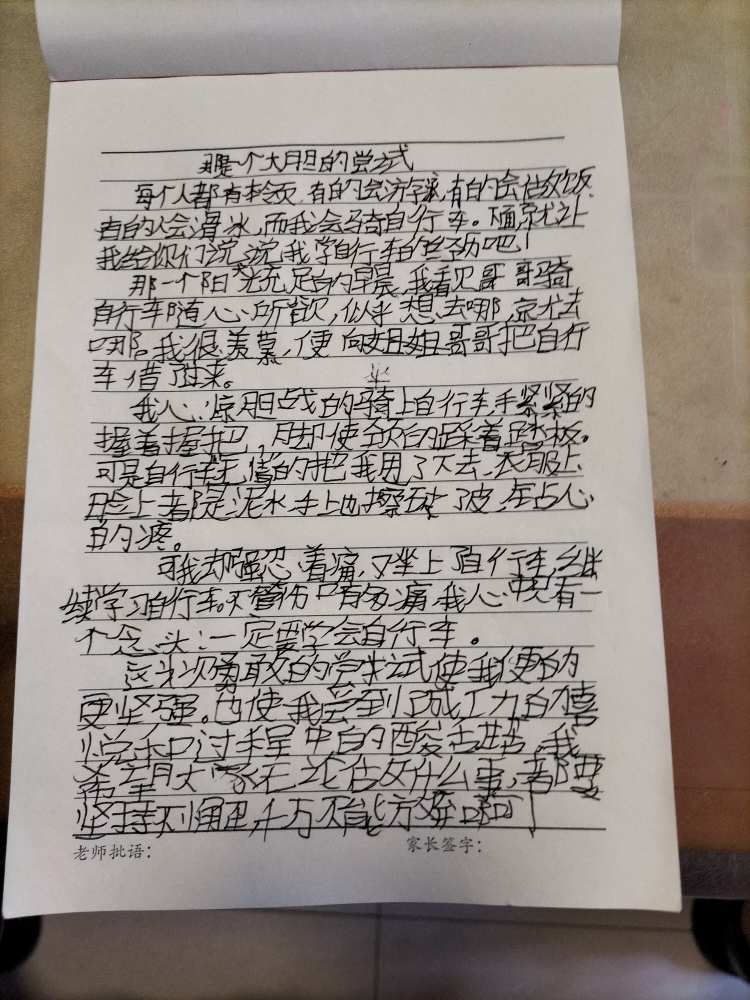 那是一个大胆的尝试
每个人都有本领,有的会游泳,有的会做饭,
有的人会滑冰,而我会骑自行车。下面就让
我给你们说说我学自行车的经历吧!
那一个阳光充足的早晨,我看见哥哥骑
自行车随心所欲,似乎想去哪,就去
哪。我很羡慕,便向姐姐哥哥把自行
车借了过来。
我心惊胆战的骑上自行车,手紧紧的
握着握把,脚使颈的踩着踏板。
可是自行车无情的把我甩了下去,衣服上
脸上都是泥水,手上也擦破了皮,钻心
的疼。
可我却强忍着痛,又坐上自行车,继
续学习自行车。不管伤口有多痛,我心中只有一
个念头:一定要学会自行车。
这次勇敢的尝试使我便的
更坚强。也使我尝到了成功的喜
悦和过程中的酸苦甜,我
希望大家无论做什么事,都要
坚持不懈千万不能放弃啊!
老师批语:
家长签字: